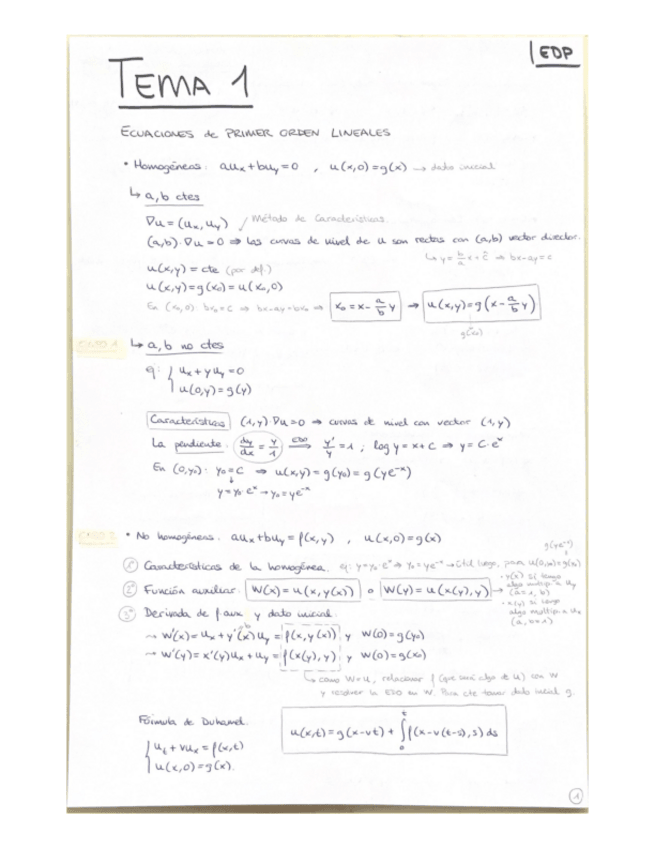 EDP
TEMA 1
ECUACIONES de PRIMER ORDEN LINEALES
• Homogéneas: aux+buy=0 , u(x,0)=g(x) → dato inicial
↳ a,b ctes
∇u=(ux,uy) Método de Características.
(a,b)·∇u=0 ⇒ Las curvas de nivel de u son rectas con (a,b) vector director.
↳ y=b/a x+ĉ ⇒ bx-ay=c
u(x,y)=cte (por def.)
u(x,y)=g(x0)=u(x0,0)
En (x0,0) bx0=c ⇒ bx-ay=bx0 ⇒ x0=x-a/b y → u(x,y)=g(x-a/b y)
g(x0)
CASO 1 ↳ a,b no ctes
ej: { ux+yuy=0
u(0,y)=g(y)
Características (1,y)·∇u=0 ⇒ curvas de nivel con vector (1,y)
La pendiente: dy/dx=y/1 EDO⟹ y'/y=1 ; log y=x+C ⇒ y=C·e^x
En (0,y0): y0=C ⇒ u(x,y)=g(y0)=g(ye^-x)
y=y0·e^x → y0=ye^-x
CASO 2 • No homogéneas: aux+buy=f(x,y) , u(x,0)=g(x)
g(ye^-x)
1º Características de la homogénea. ej: y=y0·e^x ⇒ y0=ye^-x → útil luego, para u(0,y0)=g(y0)
2º Función auxiliar: W(x)=u(x,y(x)) o W(y)=u(x(y),y)
• y(x) si tengo
algo multip. a uy
(a=1, b)
• x(y) si tengo
algo multip. a ux
(a, b=1)
3º Derivada de f aux y dato inicial:
→ W'(x)=ux+y'(x)uy=f(x,y(x)) y W(0)=g(y0)
→ W'(y)=x'(y)ux+uy=f(x(y),y) y W(0)=g(x0)
↳ como W=u, relacionar f (que será algo de u) con W
y resolver la EDO en W. Para cte tomar dato inicial g.
Fórmula de Duhamel.
u(x,t)=g(x-vt)+∫0^t f(x-v(t-s),s)ds
{ ut+vux=f(x,t)
u(x,0)=g(x).
1